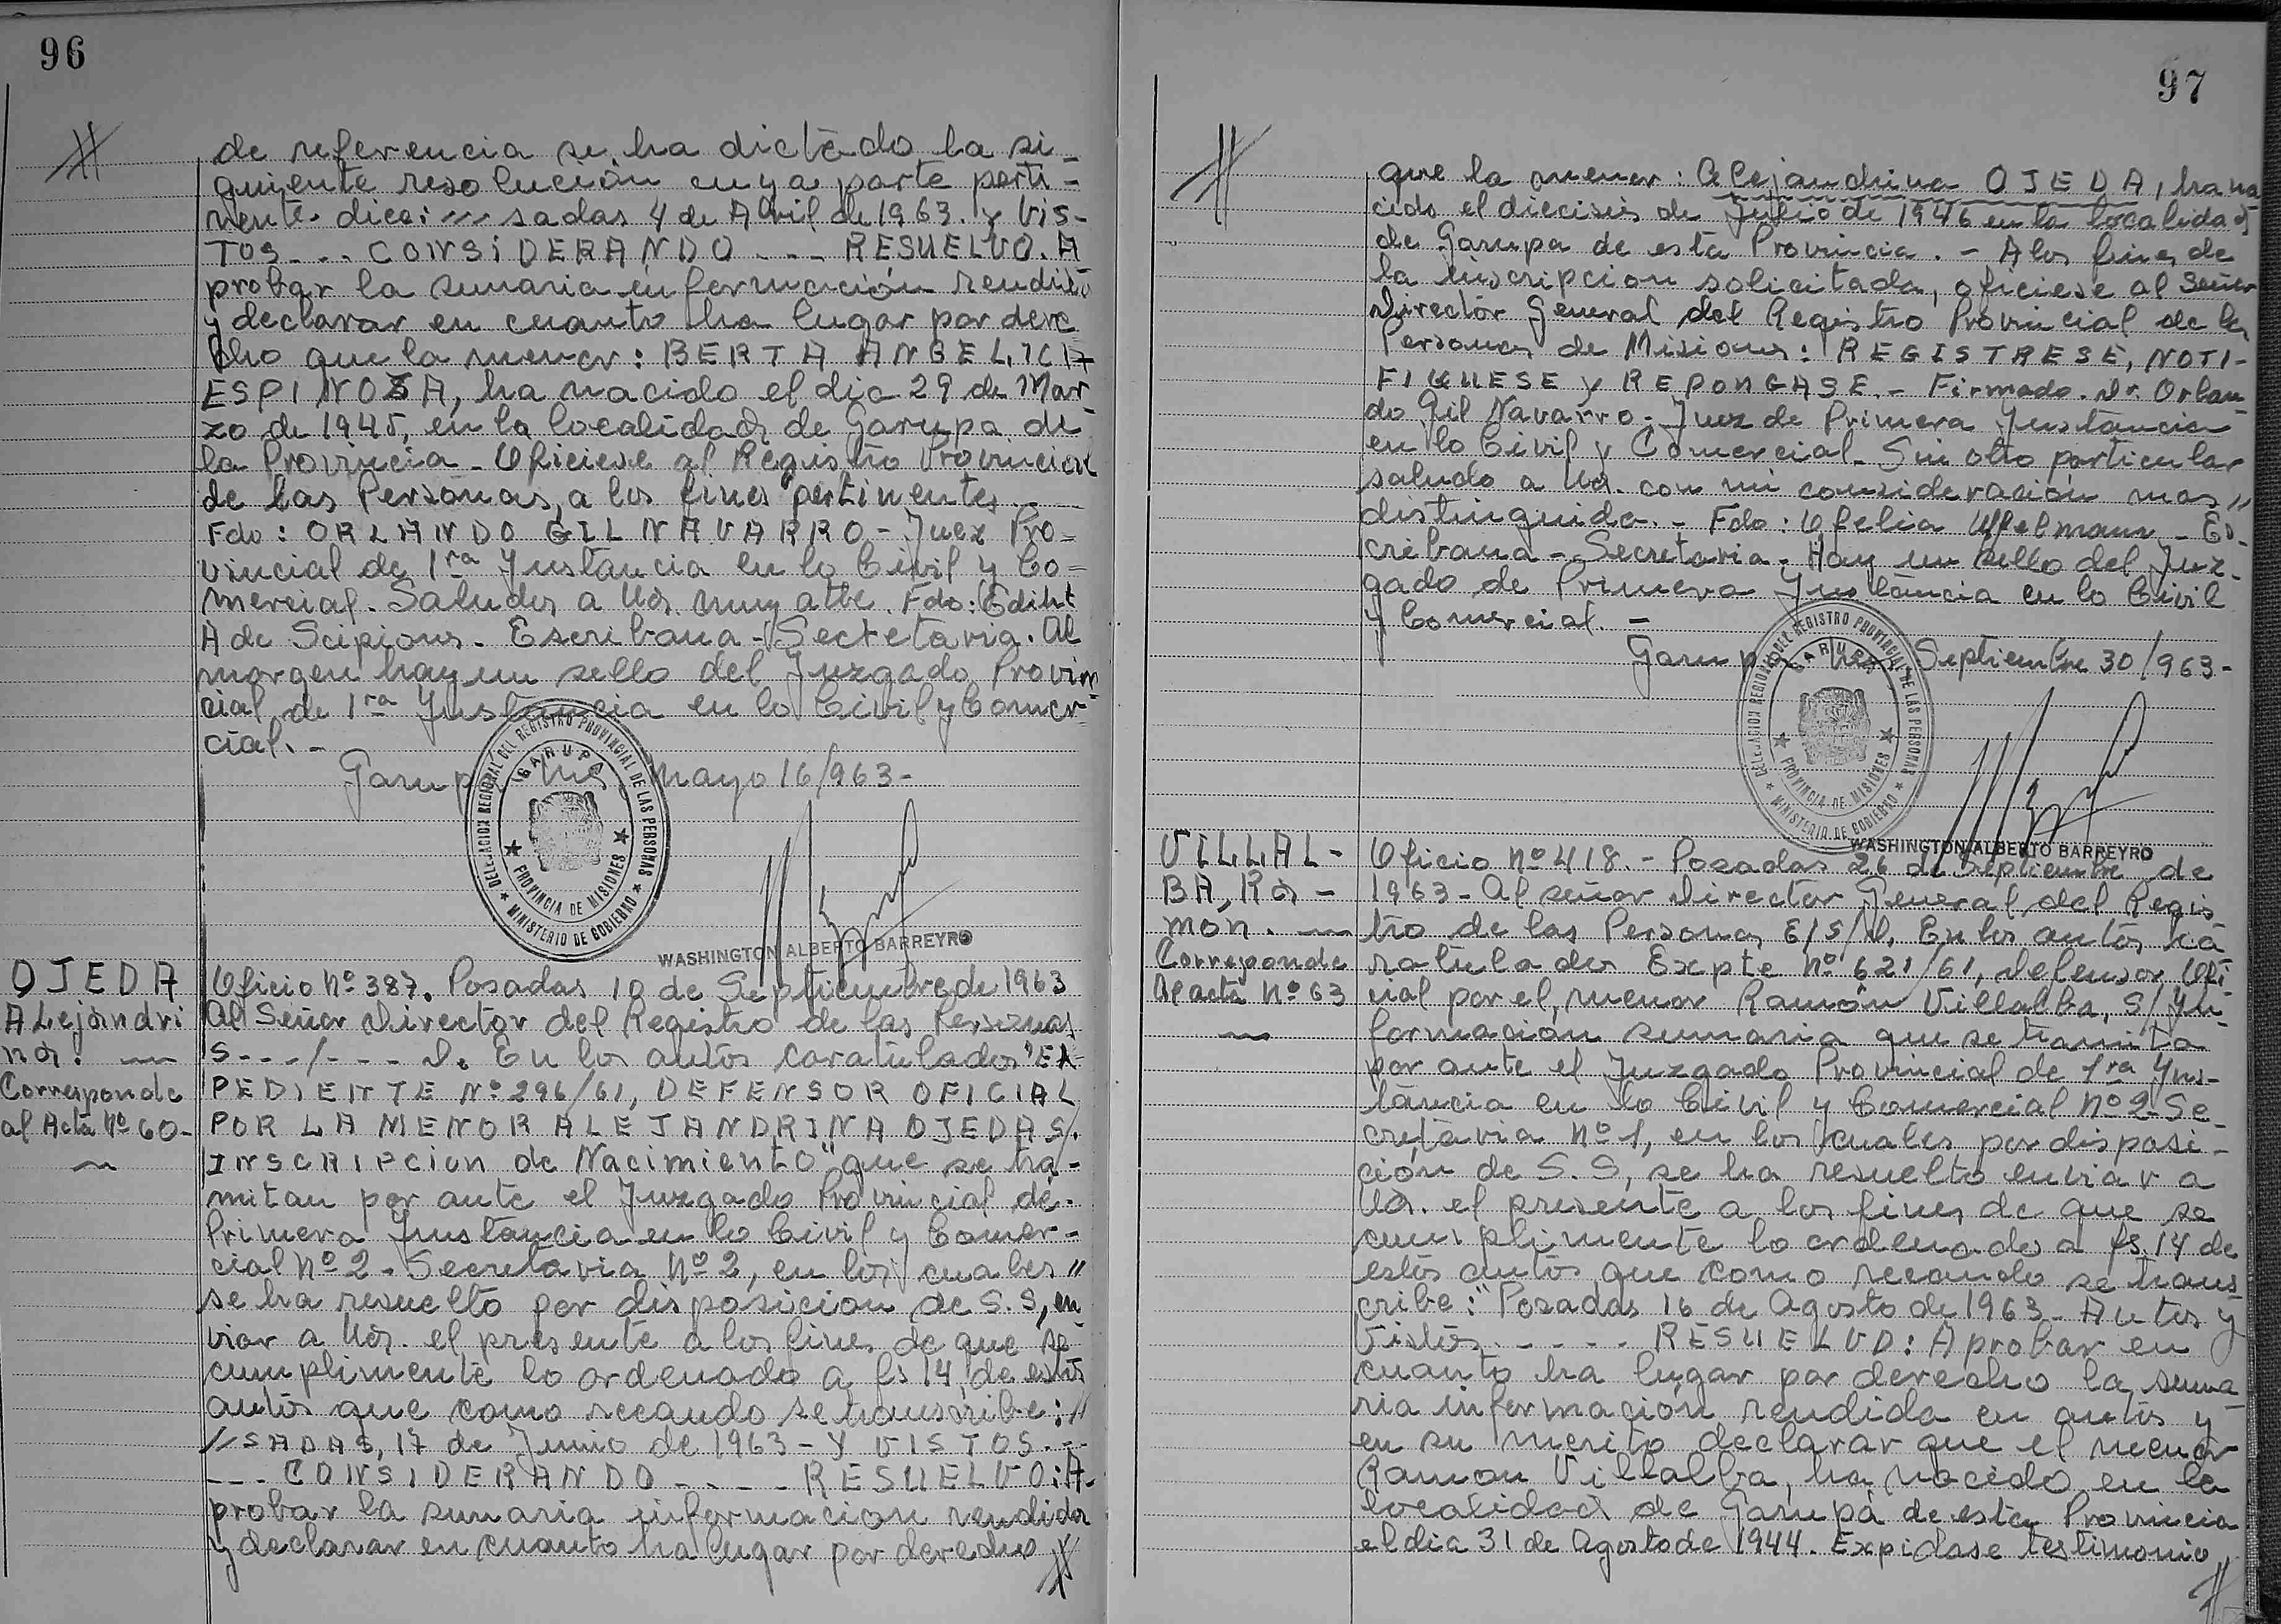 96
de referencia se ha dictado la si-
guiente resolución cuya parte perti-
nente dice: sadas 4 de Abril de 1963. y VIS-
TOS --- CONSIDERANDO --- RESUELVO. A
probar la sumaria información rendida
y declarar en cuanto ha lugar por dere
cho que la menor: BERTA ANGELICA
ESPINOZA, ha nacido el dia 29 de Mar-
zo de 1945, en la localidad de Garupa de
la Provincia - Oficiese al Registro Provincial
de las Personas, a los fines pertinentes
Fdo: ORLANDO GIL NAVARRO - Juez Pro=
vincial de 1ra Instancia en lo Civil y Co=
mercial. Saludos a Ud. muy atte. Fdo: Ediht
A de Scipions - Escribana - Secretaria. Al
margen hay un sello del Juzgado Provin
cial de 1ra Instancia en lo Civil y Comer-
cial. -
Garupa Mayo 16/963-
DELEGACION REGIONAL DEL REGISTRO PROVINCIAL DE LAS PERSONAS
GARUPA
PROVINCIA DE MISIONES
MINISTERIO DE GOBIERNO
WASHINGTON ALBERTO BARREYRO
OJEDA
ALejandri
na.
Corresponde
al Acta Nº 60-
Oficio Nº 387. Posadas 10 de Septiembre de 1963
Al Señor Director del Registro de las Personas
S---/--- D. En los autos caratulados "EX=
PEDIENTE Nº 296/61, DEFENSOR OFICIAL
POR LA MENOR ALEJANDRINA OJEDA S/.
INSCRIPCION de Nacimiento" que se tra-
mitan por ante el Juzgado Provincial de.
Primera Instancia en lo Civil y Comer-
cial Nº 2 - Secretaria Nº 2, en los cuales "
se ha resuelto por disposicion de S.S, en
viar a Ud. el presente a los fines de que se
cumplimente lo ordenado a fs 14, de estos
autos que como recaudo se transcribe: //
//SADAS, 17 de Junio de 1963 - Y VISTOS.--
--- CONSIDERANDO ---- RESUELVO: A-
probar la sumaria informacion rendida
y declarar en cuanto ha lugar por derecho
97
que la menor: Alejandrina OJEDA, ha na
cido el dieciseis de Julio de 1946 en la localidad
de Garupa de esta Provincia. - A los fines de
la inscripcion solicitada, oficiese al Señor
Director General del Registro Provincial de las
Personas de Misiones: REGISTRESE, NOTI-
FIQUESE y REPONGASE. - Firmado. Dr. Orlan-
do Gil Navarro - Juez de Primera Instancia
en lo Civil y Comercial - Sin otro particular
saludo a Ud. con mi consideración mas "
distinguida. - Fdo: Ofelia - Es-
cribana - Secretaria - Hay un sello del Juz-
gado de Primera Instancia en lo Civil
y Comercial. -
Garupa Septiembre 30/963-
DELEGACION REGIONAL DEL REGISTRO PROVINCIAL DE LAS PERSONAS
GARUPA
PROVINCIA DE MISIONES
MINISTERIO DE GOBIERNO
WASHINGTON ALBERTO BARREYRO
VILLAL-
BA, Ra-
món.
Corresponde
Al acta Nº 63
Oficio Nº 418. - Posadas 26 de Septiembre de
1963 - Al señor Director General del Regis
tro de las Personas E/S/D. En los autos ca
ratulados Expte Nº 621/61, Defensor Ofi
cial por el menor Ramón Villalba, S/In-
formacion sumaria que se tramita
por ante el Juzgado Provincial de 1ra Ins-
tancia en lo Civil y Comercial Nº 2 - Se-
cretaria Nº 1, en los cuales por disposi-
ción de S.S, se ha resuelto enviar a
Ud. el presente a los fines de que se
cumplimente lo ordenado a fs. 14 de
estos autos que como recaudo se trans
cribe: "Posadas 16 de Agosto de 1963 - Autos y
Vistos ----- RESUELVO: Aprobar en
cuanto ha lugar por derecho la suma
ria información rendida en autos y
en su merito declarar que el menor
Ramon Villalba, ha nacido en la
localidad de Garupá de esta Provincia
el dia 31 de Agosto de 1944. Expidase testimonio